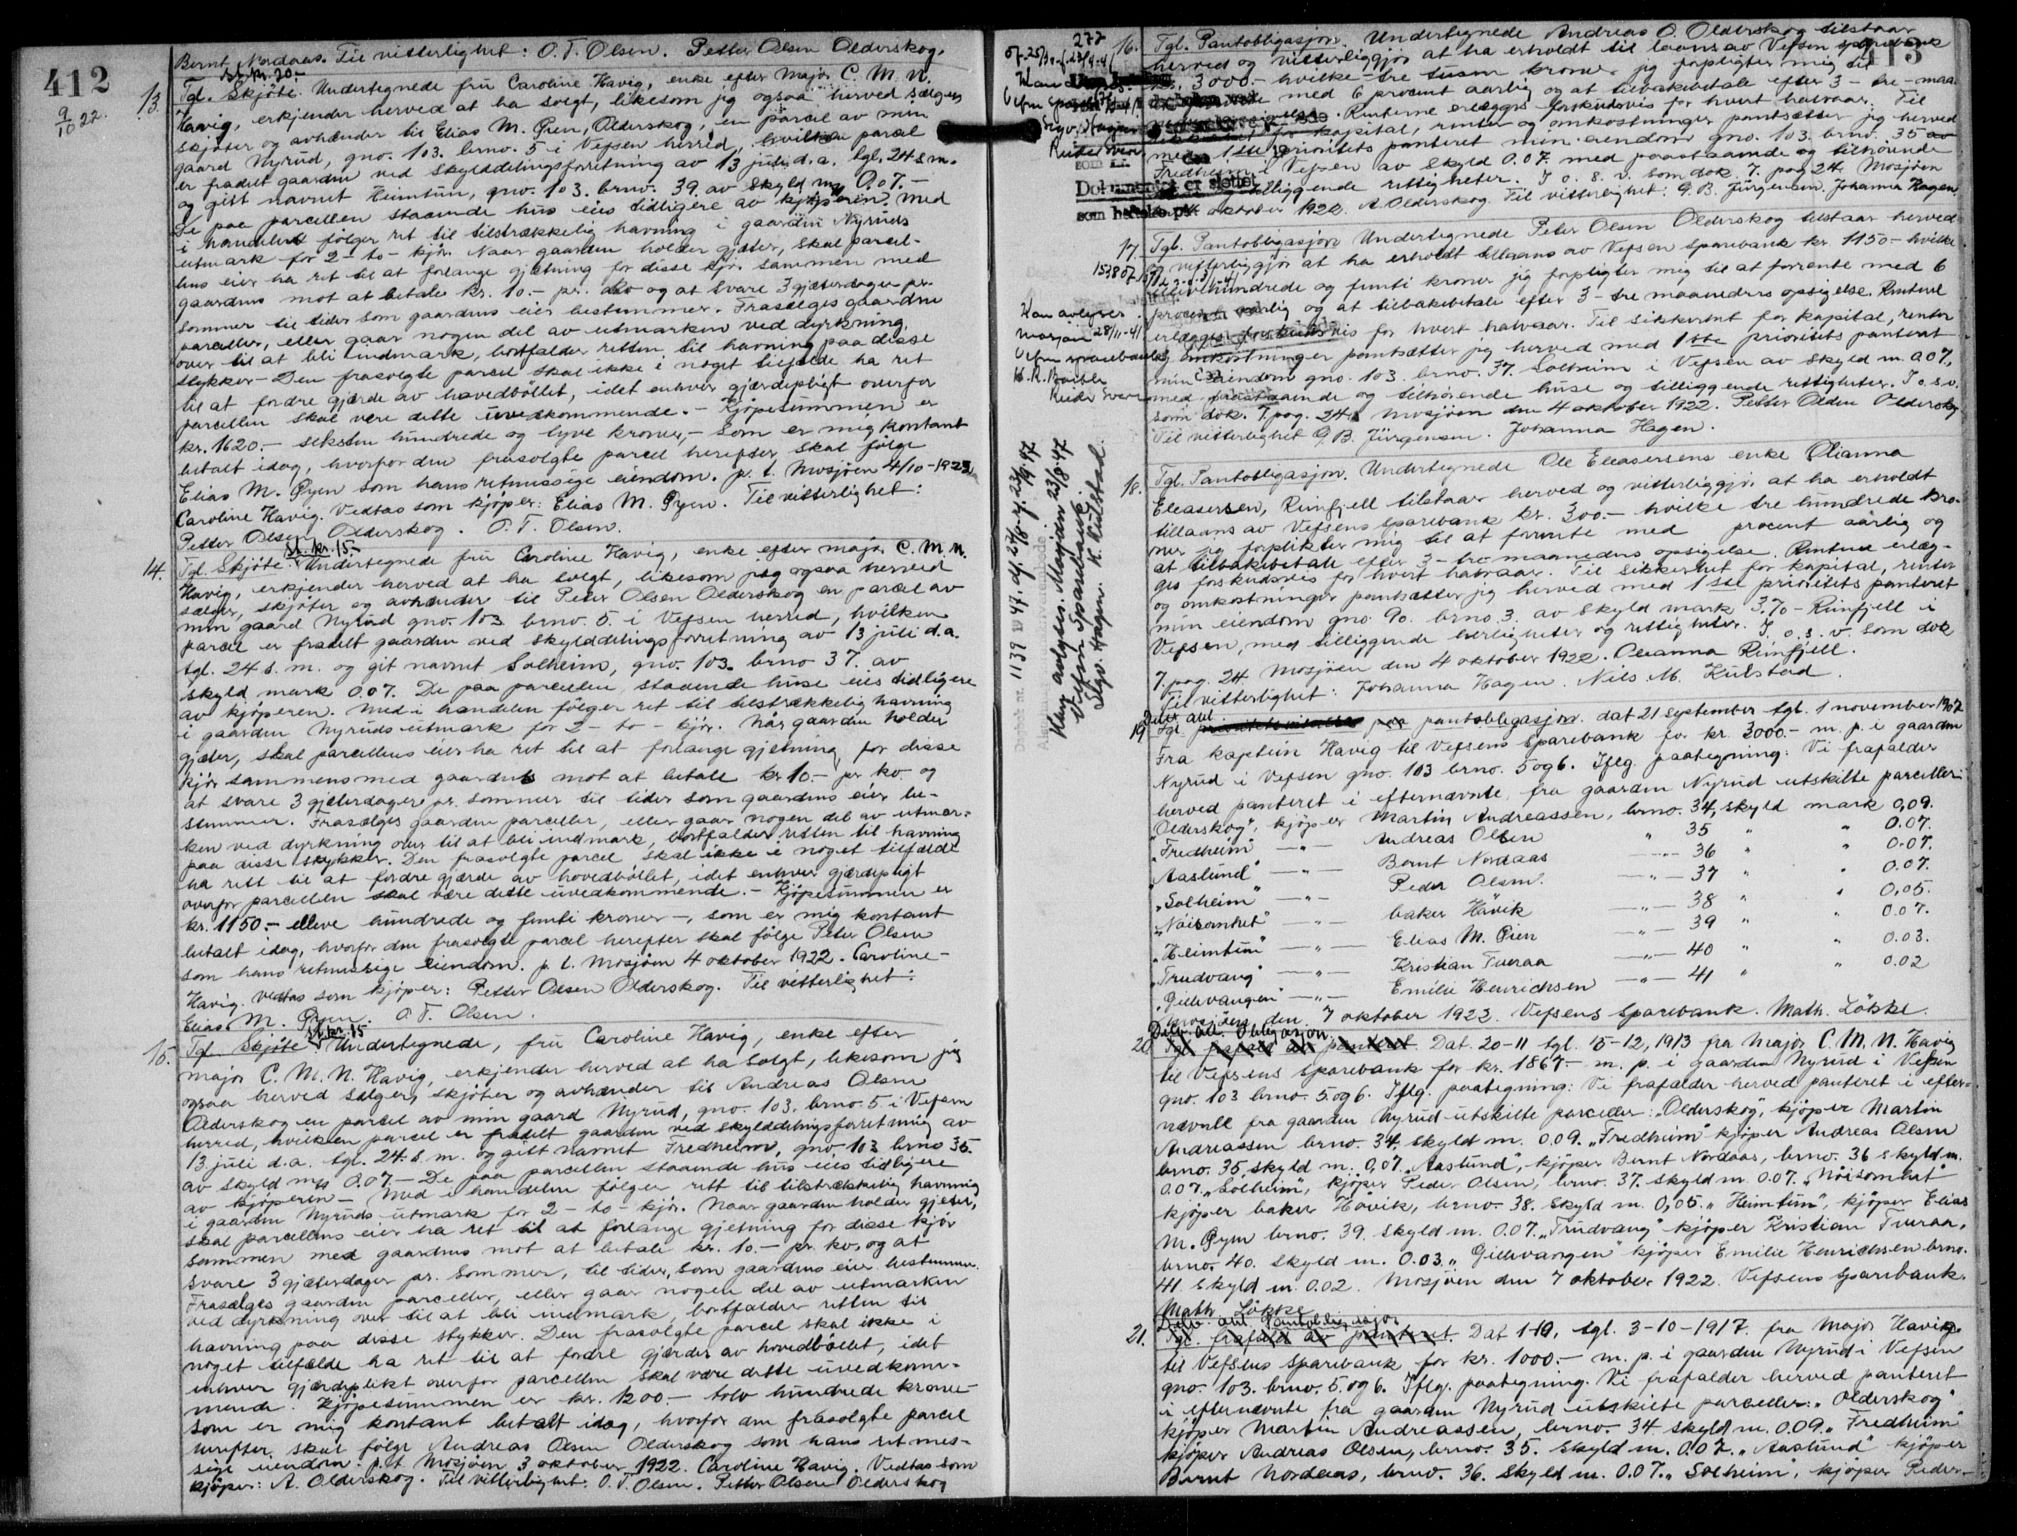 412
9/10 22.
Bernt Nordaas. Til vitterlighet: O. T. Olsen. Petter Olsen Olderskog.
St. kr. 20.-
13. Tgl. Skjöte. Undertegnede frü Caroline Havig, enke efter major C. M. N.
Havig, erkjender herved at ha solgt, likesom jeg ogsaa herved sælger,
skjöter og avhænder til Elias M. Øyen, Olderskog, en parcel av min
gaard Nyrud, gno. 103. brno. 5 i Vefsen herred, hvilken parcel
er fradelt gaarden ved skylddelingsforretning av 13 juli d.a. tgl. 24 s m.
og gitt navnet Heimtun, gno. 103. brno. 39. av skyld mrk 0.07.-
De paa parcellen staaende hus eies tidligere av kjøperen. Med
i handelen følger ret til tilstrækkelig havning i gaarden Nyruds
utmark for 2- to- kjör. Naar gaarden holder gjæter, skal parcel-
lens eier ha ret til at forlange gjætning for disse kjör sammen med
gaardens mot at betale kr. 10.- pr. ko og at svare 3 gjæterdager pr.
sommer til tider som gaardens eier bestemmer. Frasælges gaarden
parceller, eller gaar nogen del av utmarken ved dyrkning
over til at bli indmark, bortfalder retten til havning paa disse
stykker - Den frasolgte parcel skal ikke i noget tilfælde ha ret
til at fordre gjærde av hovedböllet, idet enhver gjærdepligt overfor
parcellen skal være dette uvedkommende. - Kjöpesummen er
kr. 1620.- seksten hundrede og tyve kroner,- som er mig kontant
betalt idag, hvorfor den frasolgte parcel herefter skal følge
Elias M. Øyen som hans retmæssige eiendom. p. t. Mosjøen 4/10 - 1922
Caroline Havig. Vedtas som kjøper: Elias M. Øyen. Til vitterlighet:
Petter Olsen Olderskog. O. T. Olsen.
St. kr. 15.-
14. Tgl. Skjöte. Undertegnede frü Caroline Havig, enke efter major C. M. N.
Havig, erkjender herved at ha solgt, likesom jeg ogsaa herved
sælger, skjöter og avhænder til Peter Olsen Olderskog en parcel av
min gaard Nyrud gno. 103 brno. 5. i Vefsen herred, hvilken
parcel er fradelt gaarden ved skylddelingsforretning av 13 juli d.a.
tgl. 24 s. m. og git navnet Solheim, gno. 103. brno 37. av
skyld mark 0.07. De paa parcellen staaende huse eies tidligere
av kjøperen. Med i handelen følger ret til tilstrækkelig havning
i gaarden Nyruds utmark for 2- to- kjör. Når gaarden holder
gjæter, skal parcellens eier ha ret til at forlange gjetning for disse
kjör sammen med gaardens mot at betale kr 10.- pr ko og
at svare 3 gjæterdager pr. sommer til tider som gaardens eier be-
stemmer. Frasælges gaarden parceller, eller gaar nogen del av utmar-
ken ved dyrkning over til at bli indmark, bortfalder retten til havning
paa disse stykker. Den frasolgte parcel skal ikke i noget tilfælde
ha rett til at fordre gjærde av hovedböllet, idet enhver gjærdepligt
overfor parcellen skal være dette uvedkommende. - Kjöpesummen er
kr. 1150.- elleve hundrede og femti kroner -, som er mig kontant
betalt idag, hvorfor den frasolgte parcel herefter skal følge Peter Olsen
som hans retmæssige eiendom. p. t. Mosjøen 4 oktober 1922. Caroline
Havig. Vedtas som kjøper: Petter Olsen Olderskog. Til vitterlighet:
Elias M. Øyen. O. T. Olsen.
St. kr. 15
15. Tgl. Skjöte Undertegnede, frü Caroline Havig, enke efter
major C. M. N. Havig, erkjender herved at ha solgt, likesom jeg
ogsaa herved sælger, skjöter og avhænder til Andreas Olsen
Olderskog en parcel av min gaard Nyrud, gno. 103. brno. 5 i Vefsen
herred, hvilken parcel er fradelt gaarden ved skylddelingsforretning av
13 juli d.a. tgl. 24. s. m. og gitt navnet Fredheim, gno 103 brno 35.
av skyld mrk 0.07 - De paa parcellen staaende hus eies tidligere
av kjöperen - Med i handelen følger rett til tilstrækkelig havning
i gaarden Nyruds utmark for 2- to- kjör. Naar gaarden holder gjeter,
skal parcellens eier ha ret til at forlange gjetning for disse kjör
sammen med gaardens mot at betale kr. 10.- pr. ko, og at
svare 3 gjæterdager pr. sommer, til tider, som gaardens eier bestemmer.
Frasælges gaarden parceller, eller gaar nogen del av utmarken
ved dyrkning over til at bli indmark, bortfalder retten til
havning paa disse stykker. Den frasolgte parcel skal ikke i
noget tilfælde ha ret til at fordre gjærder av hovedböllet, idet
enhver gjærdeplikt overfor parcellen skal være dette uvedkom-
mende. Kjöpesummen er kr. 1200.- tolv hundrede kroner-
som er mig kontant betalt idag, hvorfor den frasolgte parcel
herefter skal følge Andreas Olsen Olderskog som hans retmes-
sige eiendom. p.t Mosjøen 3 oktober 1922. Caroline Havig. Vedtas som
kjøper: A. Olderskog. Til vitterlighet: O. T. Olsen. Petter Olsen Olderskog
413
277
16. Tgl. Pantobligasjon. Undertegnede Andreas O. Olderskog tilstaar
herved og vitterliggjör at ha erholdt til laans av Vefsen sparebank
kr. 3000.- hvilke tre tusen kroner jeg forpligter mig til
med 6 procent aarlig og at tilbakebetale efter 3- tre- maa-
Renterne erlægges forskudsvis for hvert halvaar. Til
for kapital, renter og omkostninger pantsætter jeg herved
med 1ste prioritets panteret min eiendom gno. 103. brno. 35 av
Fredheim i Vefsen av skyld 0.07. med paastaaende og tilhörende
tilliggende rettigheter. J o. s. v. som dok. 7. pag 24 Mosjöen
oktober 1922. A Olderskog. Til vitterlighet: G. B. Jürgensen. Johanna Hagen.
Dokumentet er slettet
som heftelse på
17. Tgl. Pantobligasjon Undertegnede Peter Olsen Olderskog tilstaar herved
og vitterliggjör at ha erholdt tillaans av Vefsen Sparebank kr. 1150- hvilke
ellevehundrede og femti kroner jeg forpligter mig til at forrente med 6
procent aarlig og at tilbakebetale efter 3- tre maaneders opsigelse. Renterne
erlægges forskudsvis for hvert halvaar. Til sikkerhet for kapital, renter
og omkostninger pantsætter jeg herved med 1ste prioritets panteret
min eiendom gno. 103. brno. 37. Solheim i Vefsen av skyld m. 0.07,
med paastaaende og tilhörende huse og tilliggende rettigheter. J o. s. v.
som dok. 7. pag. 24. Mosjøen den 4 oktober 1922. Petter Olsen Olderskog
Til vitterlighet G. B. Jürgensen. Johanna Hagen.
Kan avlyses
Mosjøen 28/11-41
Vefsn sparebank
18. Tgl. Pantobligasjon. Undertegnede Ole Eleasersens enke Olianna
Eleasersen, Rimfjell tilstaar herved og vitterliggjör at ha erholdt
tillaans av Vefsens Sparebank kr. 300.- hvilke tre hundrede kro-
ner jeg forplikter mig til at forrente med procent aarlig og
at tilbakebetale efter 3- tre maaneders opsigelse. Renterne erlæg-
ges forskudsvis for hvert halvaar. Til sikkerhet for kapital, renter
og omkostninger pantsætter jeg herved med 1ste prioritets panteret
min eiendom gno. 90. brno. 3. av skyld mark 3.70 - Rimfjell i
Vefsen, med tilliggende herligheter og rettigheter. J. o. s. v. som dok
7. pag. 24 Mosjöen den 4 oktober 1922. Olianna Rimfjell.
Til vitterlighet: Johanna Hagen. Nils M. Kulstad.
Kan avlyses. Mosjøen 23/8-47
Vefsn Sparebank
Sigv. Hagen. K. Kulstad
19. Tgl. pantobligasjon. dat 21 september tgl. 1 november 1907
Fra kaptein Havig til Vefsens Sparebank for kr. 3000.- m. p. i gaarden
Nyrud i Vefsen gno. 103 brno. 5 og 6. Iflg. paategning: Vi frafalder
herved panteret i efternævnte, fra gaarden Nyrud utskilte parceller:
"Olderskog", kjøper Martin Andreassen, brno. 34, skyld mark 0,09.
"Fredheim" -"- Andreas Olsen " 35 " " 0.07.
"Aaslund" -"- Bernt Nordaas -"- 36 " " 0.07.
"Solheim" -"- Peder Olsen. -"- 37 " " 0.07.
"Nöisomhet" -"- baker Hävik -"- 38 " " 0.05.
"Heimtun" -"- Elias M. Øien -"- 39 " " 0.07.
"Trudvang" -"- Kristian Tveraa -"- 40 " " 0.03.
"Gildevangen" -"- Emilie Henrichsen -"- 41 " " 0.02
Mosjøen den 7 oktober 1923. Vefsens Sparebank. Math. Løkke.
Delv. avl. Obligasjon
20. Tgl. frafald av panteret. Dat. 20-11 tgl. 15-12, 1913 fra major C. M. N. Havig
til Vefsens Sparebank for kr. 1867.- m. p. i gaarden Nyrud i Vefsen
gno. 103 brno. 5. og 6. Iflg. paategning: Vi frafalder herved panteret i efter-
nævnte fra gaarden Nyrud utskilte parceller: "Olderskog", kjøper Martin
Andreassen brno. 34, skyld m. 0.09. "Fredheim" kjøper Andreas Olsen
brno. 35 skyld m. 0,07. "Aaslund", kjøper Bernt Nordaas, brno. 36 skyld m.
0.07. "Solheim", kjøper Peder Olsen, brno. 37. skyld m. 0.07. "Nöisomhet"
kjøper baker Hövik, brno. 38. skyld m. 0,05. "Heimtun", kjøper Elias
M. Øyen brno. 39. skyld m. 0.07. "Trudvang" kjøper Kristian Tveraa,
brno. 40. skyld m. 0.03. "Gildevangen" kjøper Emilie Henrichsen brno.
41 skyld m. 0.02. Mosjøen den 7 oktober 1922. Vefsens Sparebank.
Math. Løkke
Delv. avl. Pantobligasjon
21. Tgl. frafald av panteret. Dat 1-10, tgl. 3-10-1917. fra Major Havig
til Vefsens Sparebank for kr. 1000.- m. p. i gaarden Nyrud i Vefsen
gno. 103. brno. 5. og 6. Iflg. paategning. Vi frafalder herved panteret
i efternevnte fra gaarden Nyrud utskilte parceller: "Olderskog"
kjøper Martin Andreassen, brno. 34 skyld m. 0.09. "Fredheim"
kjøper Andreas Olsen, brno. 35. skyld m. 0.07. "Aaslund" kjøper
Bernt Nordaas, brno. 36. skyld m. 0.07. "Solheim", kjøper Peder